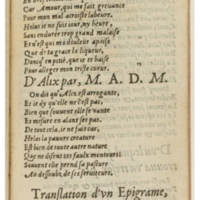 Car Amour, qui me fait greuance
Pour mon mal acroistre labeure.
Helas ie ne suis tout
Sans endurer trop grand malaise
Et n'est qui ma douleur apaise
Que de ta grace la liqueur,
Donc en pitié, que te plaise
Pour alleger mon triste cœur.
D'Alix par, M. A. D. M.
On dit qu'Alix est arrogante,
Et ie dy qu'elle ne l'est pas,
Bien que souuent elle se vante
Et mesure en alant ses pas.
De tout cela, ie ne fait cas,
Pource que bien est autre nature
Que ne disent tes faulx
Souuent elle prend sa pasture
Au dessoubz, de ses seruiteurs.
Translation d'vn Epigrame,